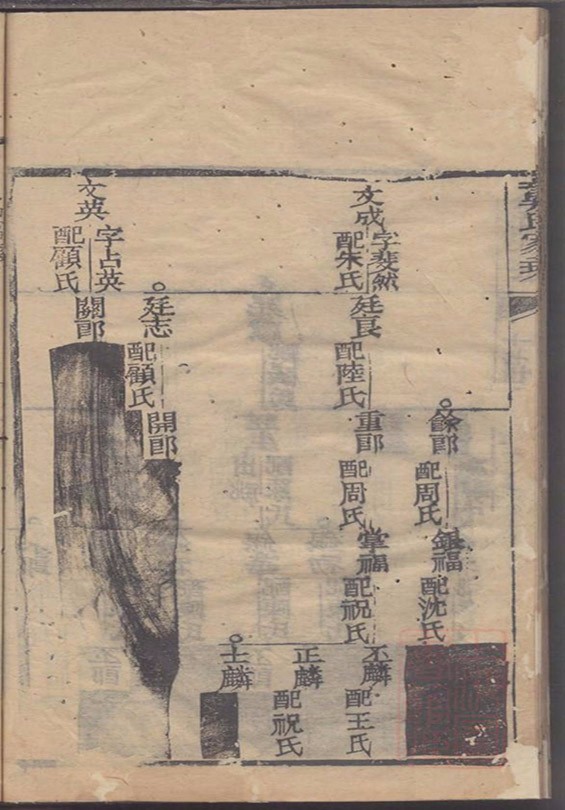 吳氏家璞
文成
字斐然
配朱氏
廷良
配陸氏
餘郎
配周氏
重郎
配周氏
銀福
配沈氏
掌福
配祝氏
丕麟
配王氏
正麟
配祝氏
士麟
廷志
配顧氏
開郎
文英
字占英
配顧氏
關郎